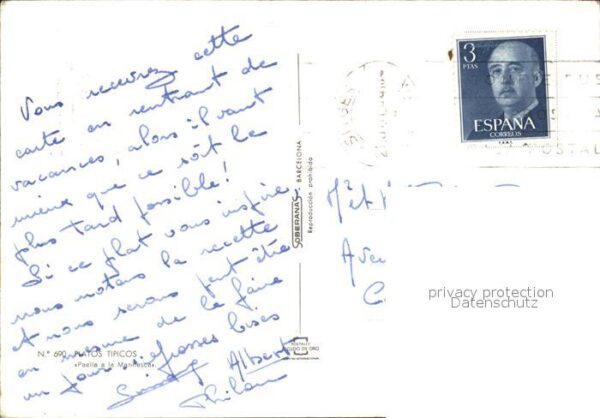 Vous recevrez cette
carte en rentrant de
vacances, alors il vaut
mieux que ce soit le
plus tard possible!
Si ce plat vous inspire
nous notons la recette
et nous serons peut être
en mesure de la faire
un jour. Grosses bises
Albert
N.° 690 PLATOS TIPICOS
«Paella a la Marinesca»
SOBERANAS BARCELONA
Reproducción prohibida
POSTALES
ESCUDO DE ORO
3
PTAS
ESPAÑA
CORREOS
POSTAL
Ave
privacy protection
Datenschutz